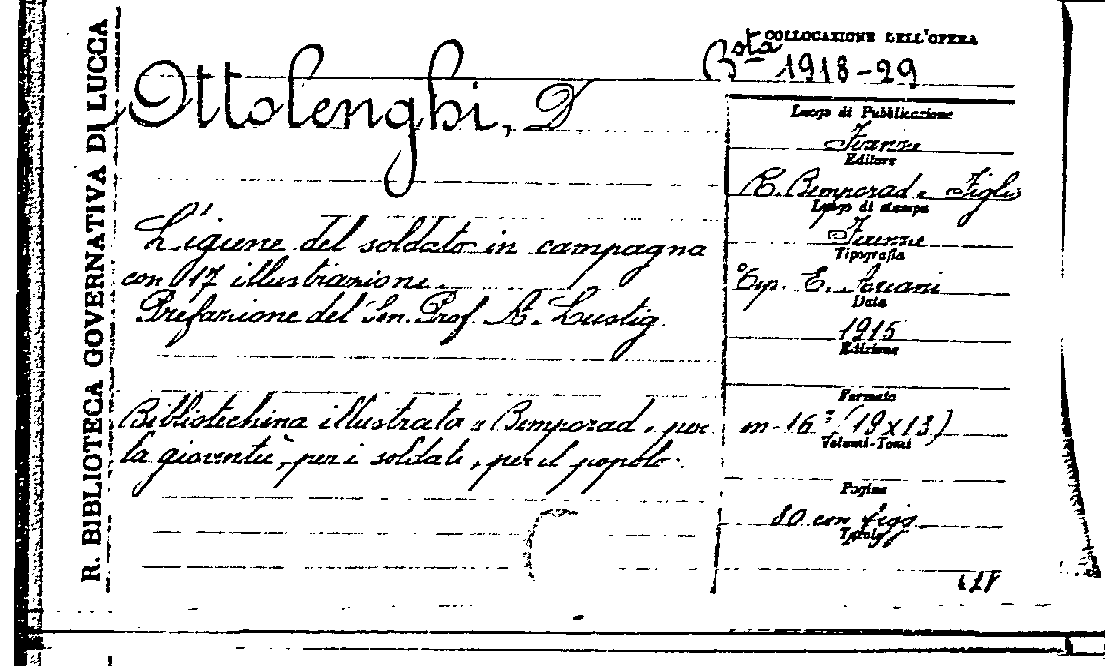 R. BIBLIOTECA GOVERNATIVA DI LUCCA
COLLOCAZIONE DELL'OPERA
Bsta 1918-29
Ottolenghi, D
L'igiene del soldato in campagna
con 17 illustrazioni
Prefazione del Sen. Prof. A. Lustig.
Bibliotechina illustrata "Bemporad" per
la gioventù, per i soldati, per il popolo.
Luogo di Pubblicazione
Firenze
Editore
R. Bemporad e Figlio
Luogo di stampa
Firenze
Tipografia
Tip. E. Ariani
Data
1915
Edizione
Formato
in-16° (19x13)
Volumi-Tomi
Pagine
80 con figg.